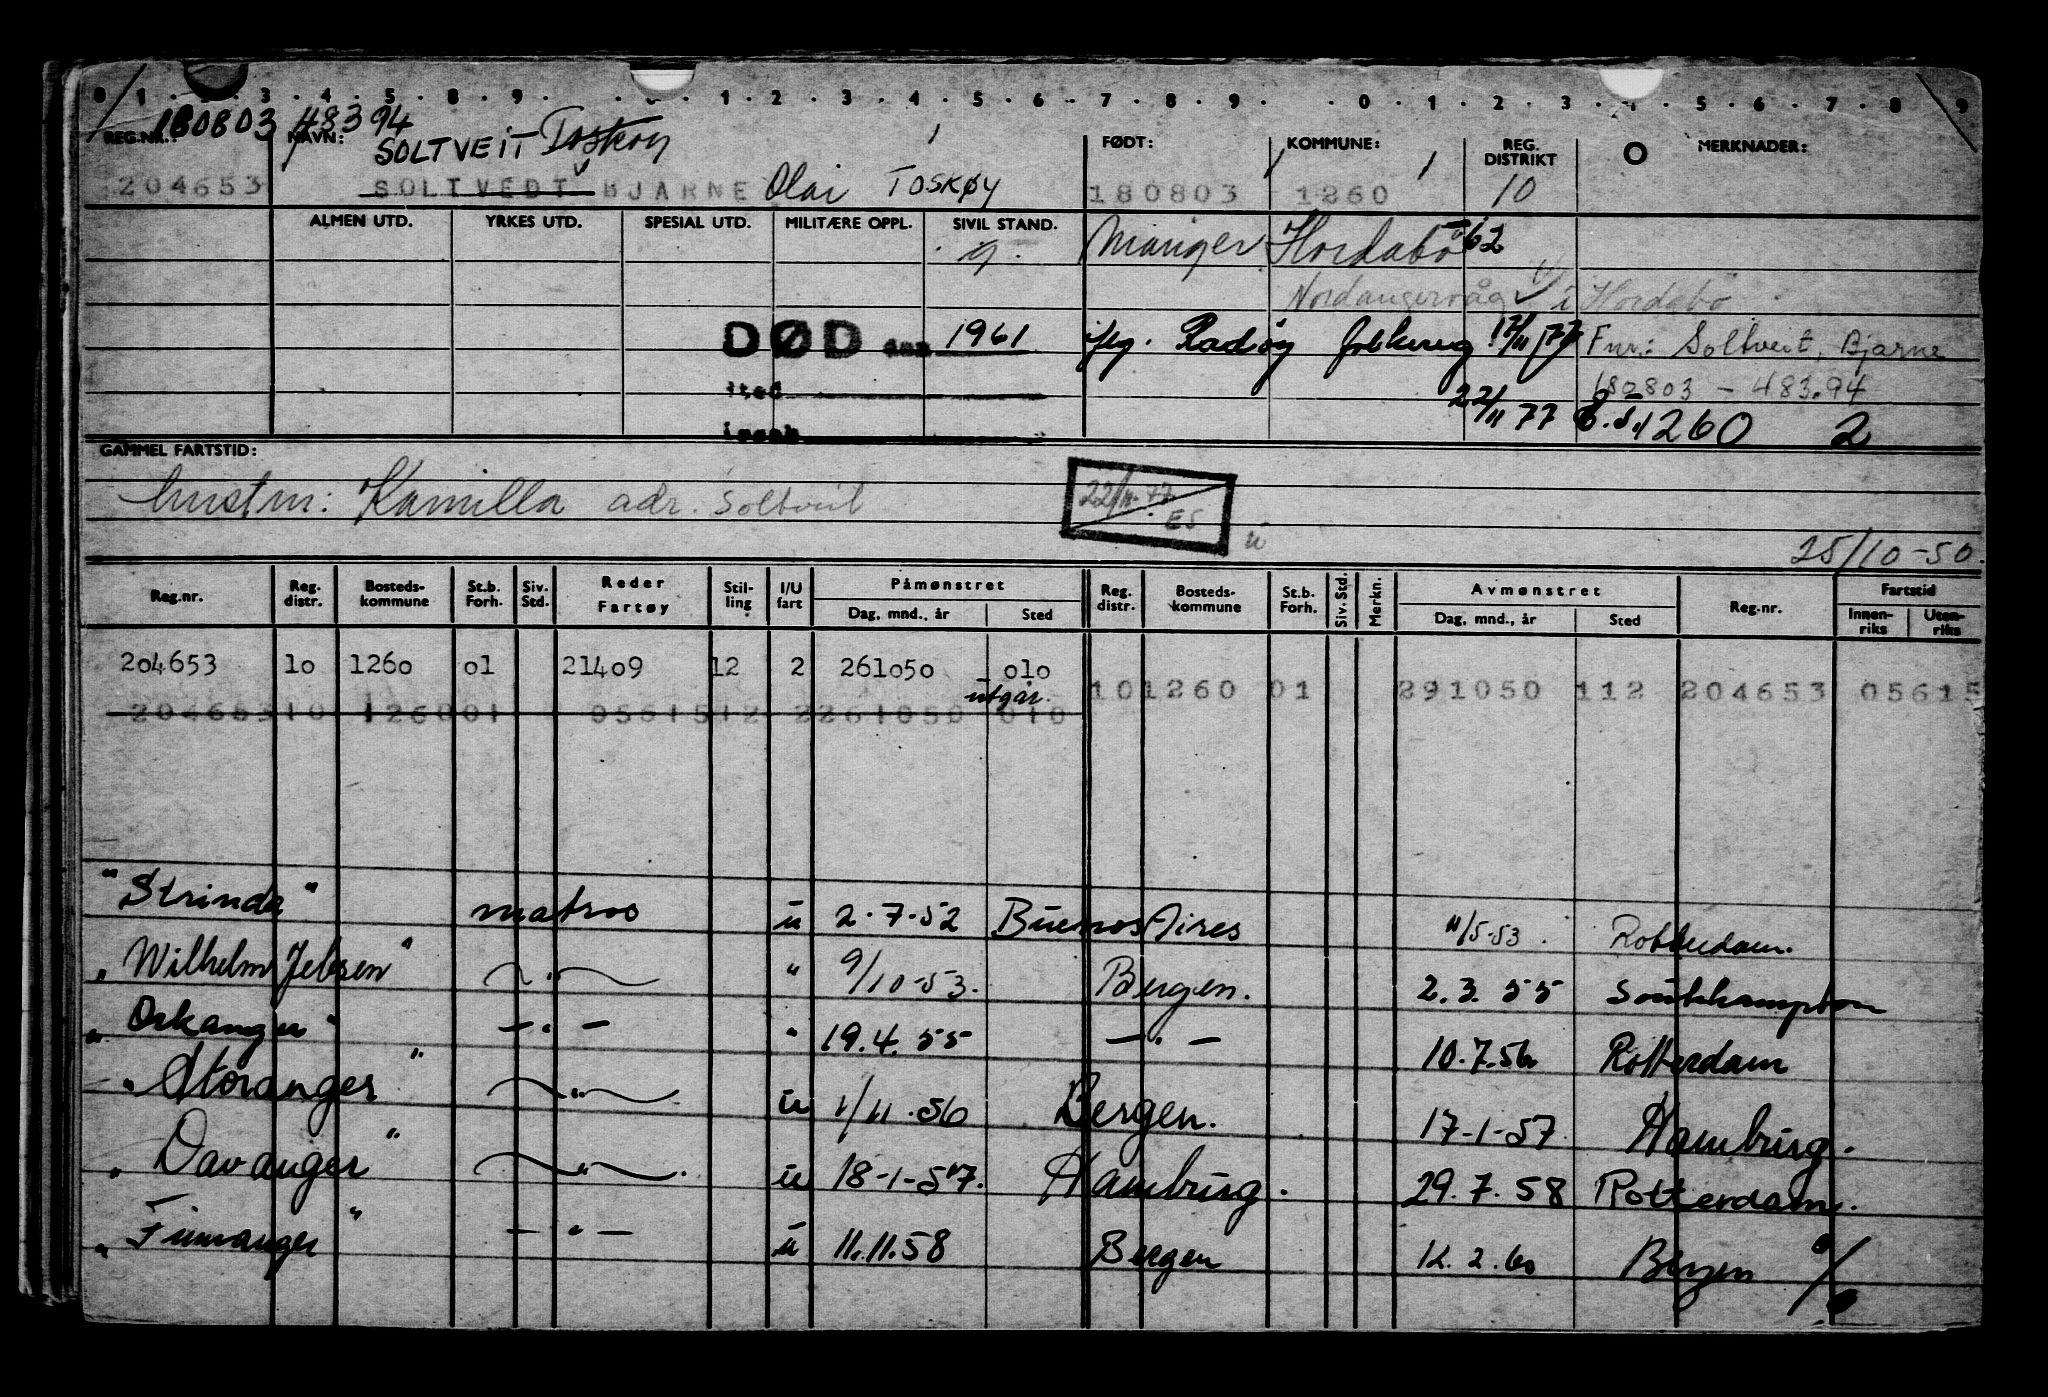 0 1 2 3 4 5 8 9 0 1 2 3 4 5 6 7 8 9 0 1 2 3 4 5 6 7 8 9
180803 48394
REG.NR.: NAVN: SOLTVEIT Toskøy FØDT: KOMMUNE: REG. DISTRIKT O MERKNADER:
204653 SOLTVEDT BJARNE Olai TOSKØY 180803 1260 10
ALMEN UTD. YRKES UTD. SPESIAL UTD. MILITÆRE OPPL. SIVIL STAND. Manger Hordabø 62
g.
Nordangervåg i Hordabø
DØD den 1961 iflg. Radøy folkereg 17/11 77 Fnr.: Soltveit, Bjarne
sted 180803 - 483.94
22/11 77 E.S. 1260 2
GAMMEL FARTSTID:
hustru: Kamilla adr. Soltveit
22/11-77 ES
ü
25/10-50.
Reg.nr. Reg. distr. Bosteds-kommune St.b. Forh. Siv. Std. Reder Fartøy Stil-ling I/U fart Påmønstret Dag, mnd., år Sted Reg. distr. Bosteds-kommune St.b. Forh. Siv. Std. Merkn. Avmønstret Dag, mnd., år Sted Reg.nr. Fartstid Innen-riks Uten-riks
204653 10 1260 01 21409 12 2 261050 010
utgår. 10 1260 01 291050 112 204653 05615
204653 10 1260 01 05615 12 2 261050 010
"Strinda" matros ü 2.7.52 Buenos Aires 11/5-53. Rotterdam.
"Wilhelm Jebsen" — " — " 9/10-53. Bergen. 2.3.55 Southhampton
"Orkanger" — " — " 19.4.55 — " — 10.7.56 Rotterdam
"Storanger" — " — ü 1/11.56 Bergen. 17-1-57 Hamburg.
"Davanger" — " — ü 18-1-57. Hamburg. 29.7.58 Rotterdam.
"Finnanger" — " — ü 11.11.58 Bergen 12.2.60 Bergen %